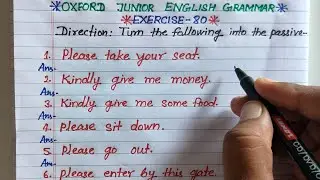 *OXFORD JUNIOR ENGLISH GRAMMAR*
*EXERCISE-80*
Direction: Turn the following into the passive-
1. Please take your seat.
Ans-
2. Kindly give me money.
Ans-
3. Kindly give me some food.
Ans-
4. Please sit down.
Ans-
5. Please go out.
Ans-
6. Please enter by this gate.